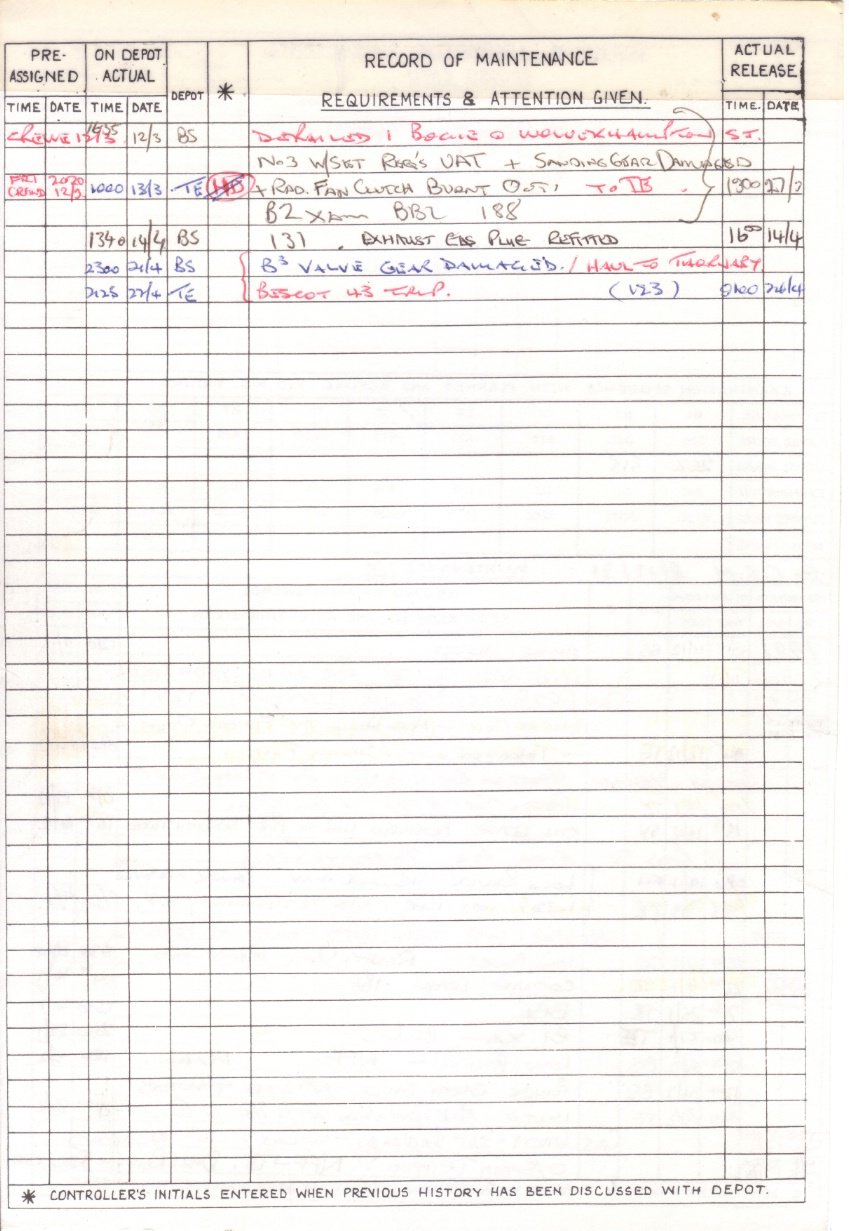 PRE-ASSIGNED ON DEPOT ACTUAL DEPOT * RECORD OF MAINTENANCE REQUIREMENTS & ATTENTION GIVEN. ACTUAL RELEASE
TIME DATE TIME DATE TIME. DATE
CREWE 12/3 1435 12/3 BS DERAILED 1 BOGIE @ WOLVERHAMPTON ST.
No3 W/SET REQ'S UAT + SANDING GEAR DAMAGED
CREWE 2020 12/3 1000 13/3 TE + RAD. FAN CLUTCH BURNT OUT, TO TE 1300 27/3
B2 XAM BBZ 188
1340 14/4 BS 131 . EXHAUST GAS PLUG REFITTED 16⁰⁰ 14/4
2300 21/4 BS B³ VALVE GEAR DAMAGED. / HAUL TO THORNABY
2125 22/4 TE BESCOT 43 TRIP. (123) 0100 24/4
* CONTROLLER'S INITIALS ENTERED WHEN PREVIOUS HISTORY HAS BEEN DISCUSSED WITH DEPOT.